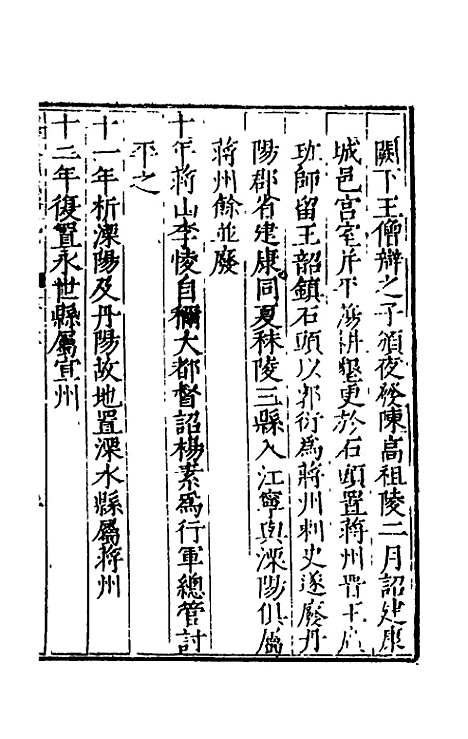 闕下王僧辯之子頒夜發陳高祖陵二月詔建康
城邑宫室并平蕩耕墾更於石頭置蔣州晋王廣
班師留王韶鎮石頭以郭衍為蔣州刺史遂廢丹
陽郡省建康同夏秣陵三縣入江寧與溧陽俱屬
蔣州餘並廢
十年蔣山李㥄自稱大都督詔楊素為行軍總管討
平之
十一年析溧陽及丹陽故地置溧水縣屬蔣州
十二年復置永世縣屬宣州